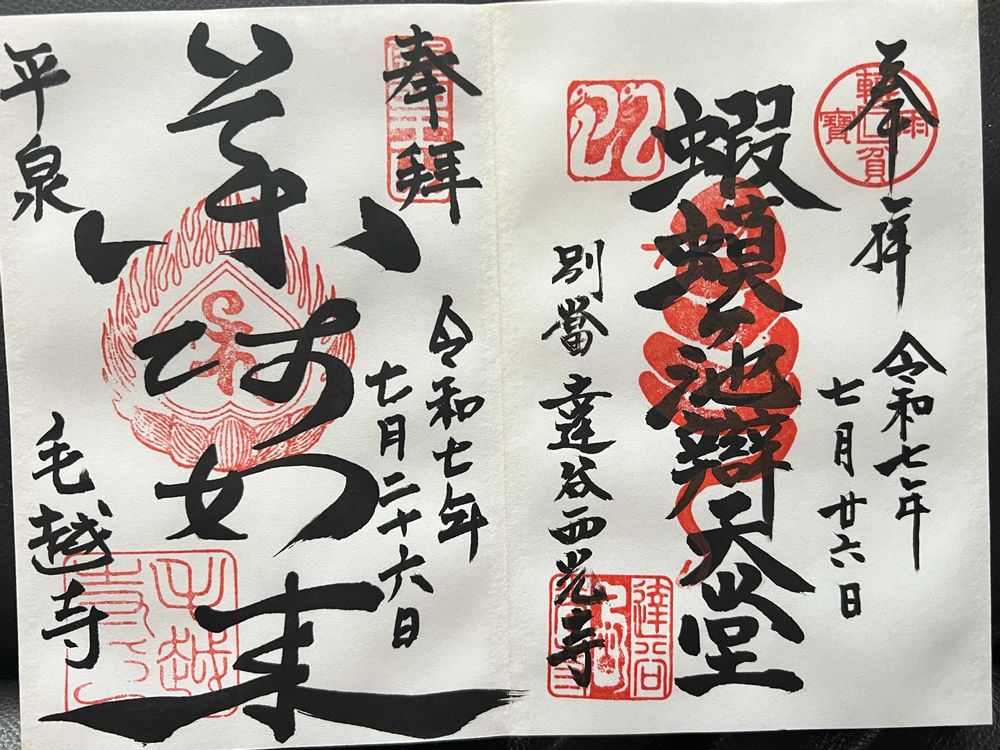 奉拜
令和七年
七月廿六日
蝦蟆ヶ池辯天堂
別當 達谷西光寺
奉拝
令和七年
七月二十六日
薬師如来
平泉
毛越寺